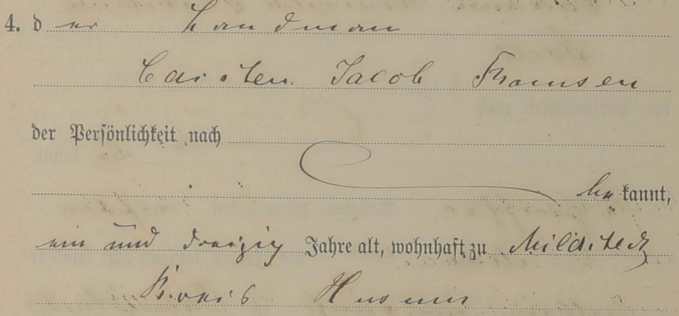 4. der Landman
Carsten Jacob Thomsen
der Persönlichkeit nach
be kannt,
ein und dreizig Jahre alt, wohnhaft zu Mildstedt
Kreis Husum